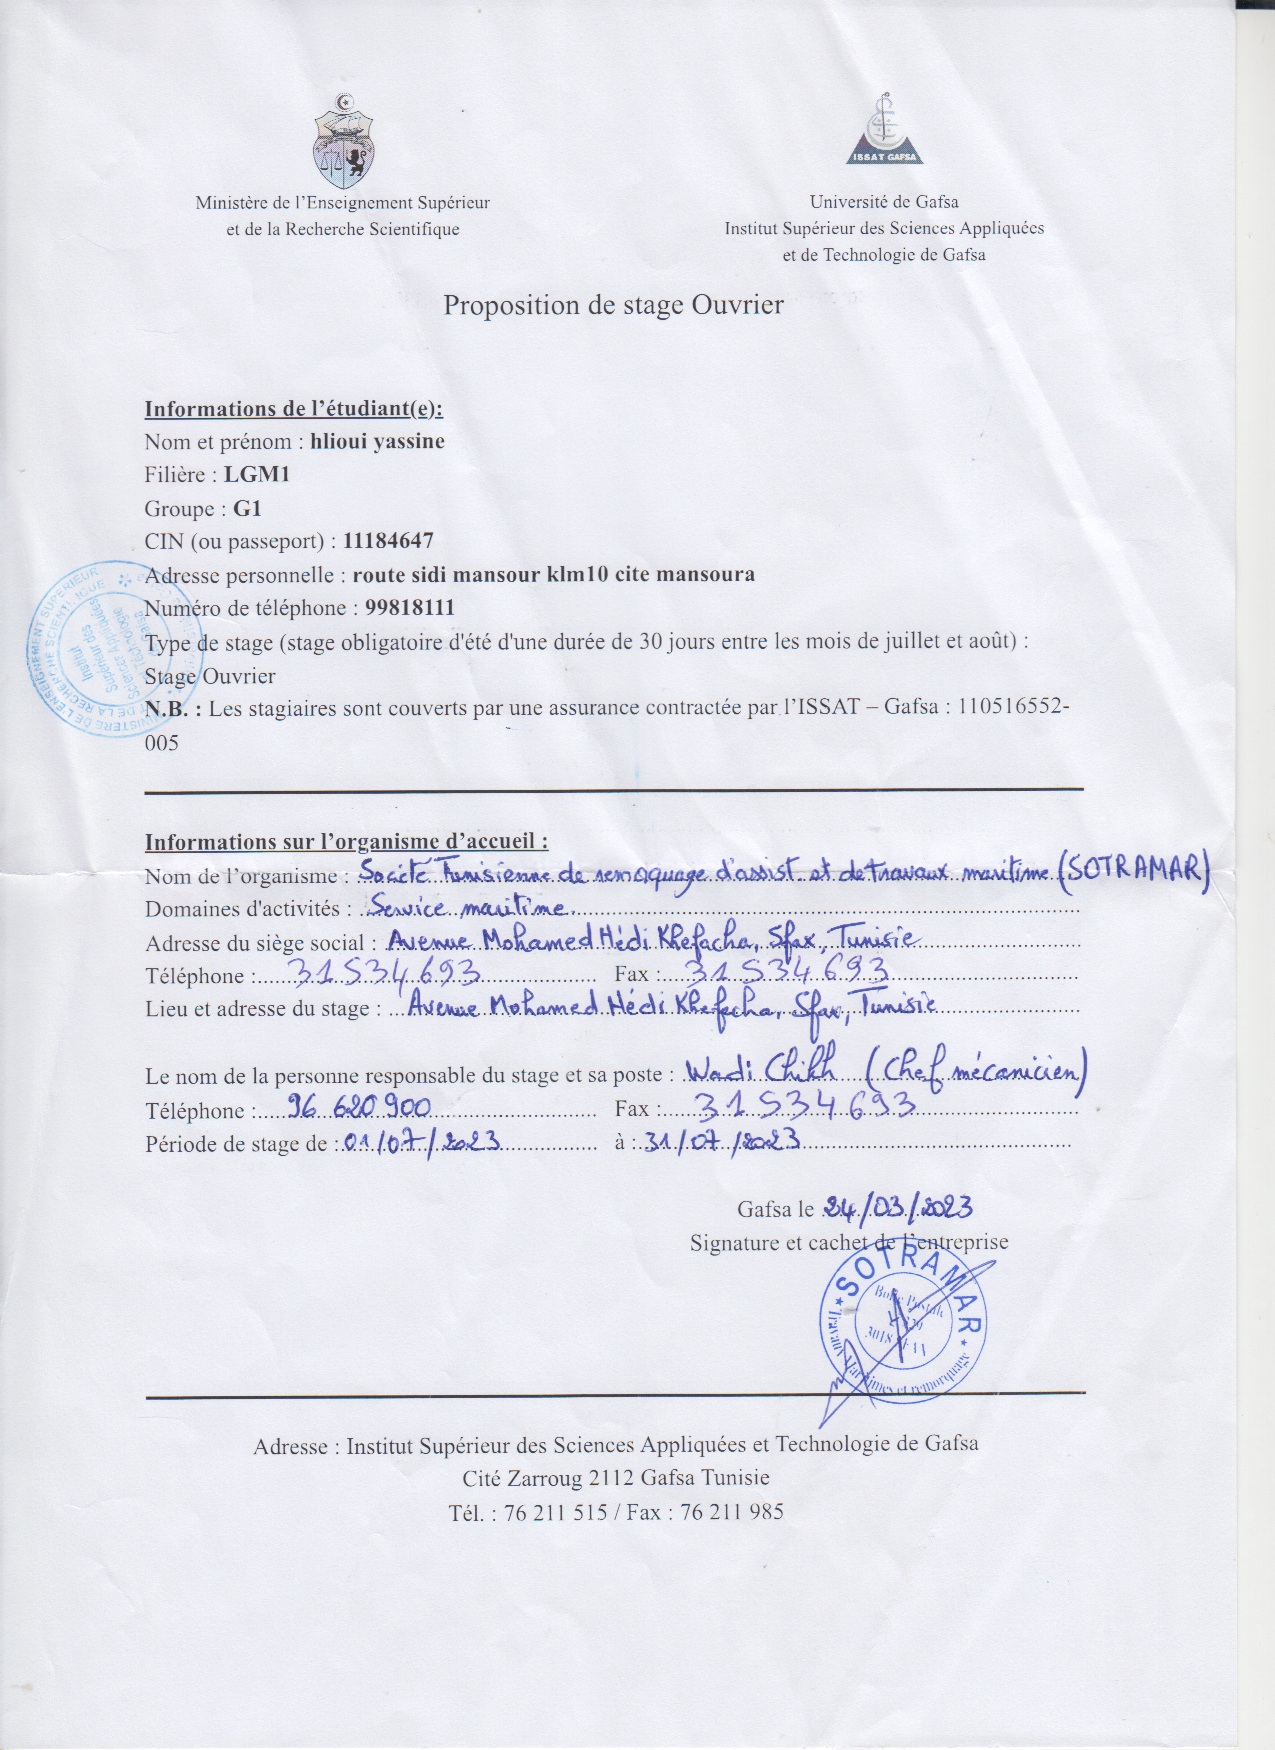 ISSAT GAFSA
Ministère de l'Enseignement Supérieur
et de la Recherche Scientifique
Université de Gafsa
Institut Supérieur des Sciences Appliquées
et de Technologie de Gafsa
Proposition de stage Ouvrier
Informations de l'étudiant(e):
Nom et prénom : hlioui yassine
Filière : LGM1
Groupe : G1
CIN (ou passeport) : 11184647
Adresse personnelle : route sidi mansour klm10 cite mansoura
Numéro de téléphone : 99818111
Type de stage (stage obligatoire d'été d'une durée de 30 jours entre les mois de juillet et août) :
Stage Ouvrier
N.B. : Les stagiaires sont couverts par une assurance contractée par l'ISSAT – Gafsa : 110516552-
005
MINISTERE DE L'ENSEIGNEMENT SUPERIEUR
ET DE LA RECHERCHE SCIENTIFIQUE
Institut
Supérieur des
Sciences Appliquées
Informations sur l'organisme d'accueil :
Nom de l'organisme : Société Tunisienne de remoquage d'assist et de travaux maritime (SOTRAMAR)
Domaines d'activités : Service maritime
Adresse du siège social : Avenue Mohamed Hédi Khefacha, Sfax, Tunisie
Téléphone : 31534693 Fax : 31534693
Lieu et adresse du stage : Avenue Mohamed Hédi Khefacha, Sfax, Tunisie
Le nom de la personne responsable du stage et sa poste : Wadi Chikh (Chef mécanicien)
Téléphone : 96 620 900 Fax : 31534693
Période de stage de : 01/07/2023 à : 31/07/2023
Gafsa le 24/03/2023
Signature et cachet de l'entreprise
SOTRAMAR
Travaux Maritimes et remorquage
Adresse : Institut Supérieur des Sciences Appliquées et Technologie de Gafsa
Cité Zarroug 2112 Gafsa Tunisie
Tél. : 76 211 515 / Fax : 76 211 985